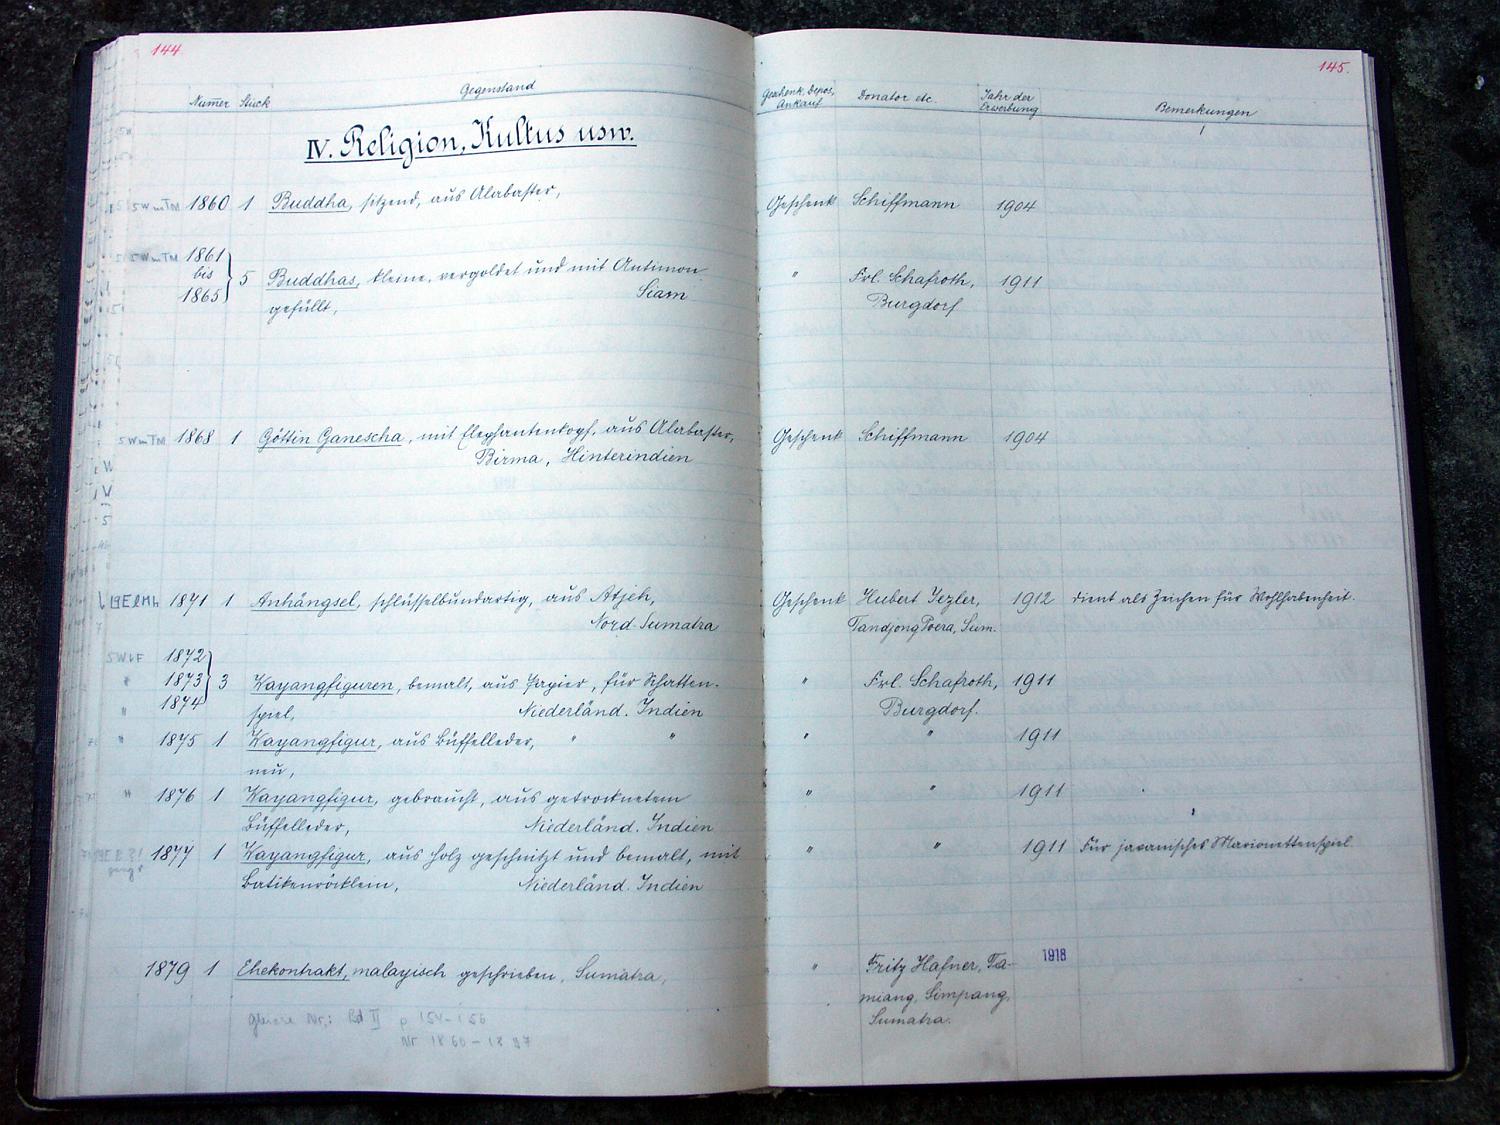 144.
145.
Numer Stück Gegenstand Geschenk, Depos, Ankauf Donator etc. Jahr der Erwerbung Bemerkungen
IV. Religion, Kultus usw.
5 W m TM 1860 1 Buddha, sitzend, aus Alabaster, Geschenk Schiffmann 1904
5 W m TM 1861
bis 5 Buddhas, kleine, vergoldet und mit Antimon " Frl. Schafroth, 1911
1865 gefüllt, Siam Burgdorf
5 W m TM 1868 1 Göttin Ganescha, mit Elephantenkopf, aus Alabaster, Geschenk Schiffmann 1904
Birma, Hinterindien
1871 1 Anhängsel, schlüsselbundartig, aus Atjeh, Geschenk Hubert Jezler, 1912 dient als Zeichen für Wohlhabenheit.
Nord-Sumatra Tandjong Poera, Sum.
1872
" 1873 3 Wayangfiguren, bemalt, aus Papier, für Schatten- " Frl. Schafroth, 1911
" 1874 spiel, Niederländ. Indien Burgdorf.
" 1875 1 Wayangfigur, aus Büffelleder, " " " " 1911
neu,
" 1876 1 Wayangfigur, gebraucht, aus getrocknetem " " 1911
Büffelleder, Niederländ. Indien
1877 1 Wayangfigur, aus Holz geschnitzt und bemalt, mit " " 1911 Für javanisches Marionettenspiel
Batikenröcklein, Niederländ. Indien
1879 1 Ehekontrakt, malayisch geschrieben, Sumatra, " Fritz Hafner, Ta- 1918
miang, Simpang,
Sumatra.
Nr.: Bd II p 154-156
Nr 1860-1897